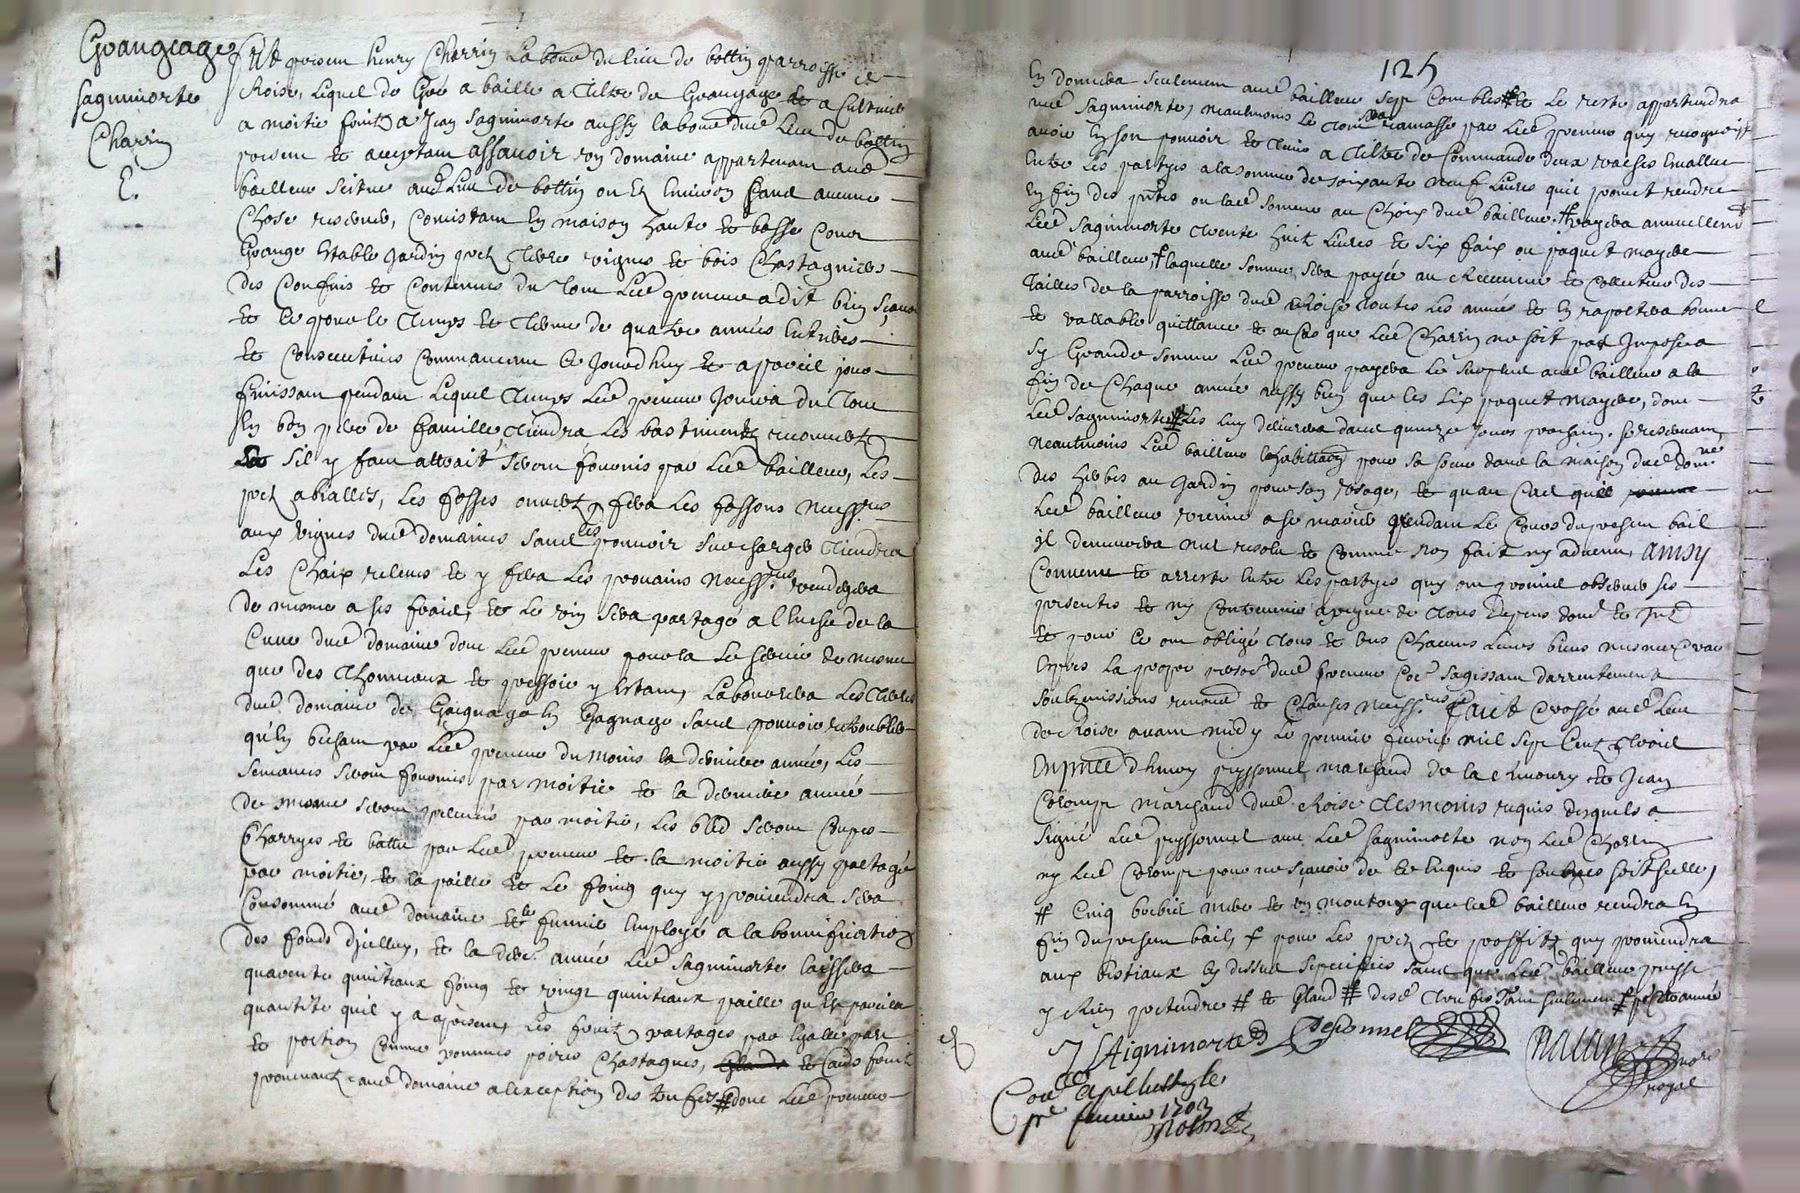 Grangeage
Saignimorte
Charrin
E.
Fut present henry Charrin laboureur du lieu de bottin parroisse de
Croise, lequel de Gré a baille a tiltre de Grangage et a Cultiver
a moitié fruitz a Jean Saignimorte aussy laboureur dud lieu de bottin
present et acceptant assavoir son domaine appartenant aud
bailleur scitue aud lieu de bottin ou Es Environ sans aucune
Chose reserver, Consistant En maison haute et basse Cour
Grange Estable Jardin prez terre vignes et bois Chastagniers
des Confins et Contenues du tout Led preneur a dit bien sçavoir
et Ce pour le temps et terme de quatre années Entieres
et Consecutives Commancant Ce Jourdhuy et a pareil jour
finissant pendant Lequel temps Led preneur Jouira du tout
En bon pere de famille, tiendra Les bastiments recouverts
sil y faut attrait seront fournis par Led bailleur, Les
prez abrallés, Les fosses ouvertz fera Les fassons necess.res
aux vignes dud domaine sans les pouvoir surcharger tiendra
Les Chaix releves et y fera Les provains necess.res vendegera
de mesme a ses fraies, et Le vin sera partagé a l'huche de la
Cuve dud domaine dont Led preneur pourra Se servir de mesme
que des thonneaux et pressoir y Estant, Labourera Les terres
dud domaine de Gaignage En Gagnage sans pouvoir retroubler
qu'En bechant par Led preneur du moins la derniere année, Les
semances seront fournies par moitié et la derniere année
de mesme seront prelevés par moitié, Les bled seront Coupes
Charryes et battu par Led preneur et la moitié aussy partagé
par moitié, et la paille et Le foing quy y proviendra sera
Consommé aud domaine et le fumier Employé a la bonnification
des fonds d'jcelluy, et la der.e année Led Saignimorte laissera
quarente quintaux foing et vingt quintaux paille qu'Est pareille
quantité quil y a apresent, Les fruitz partages par Egalle part
et portion Comme pommes poires Chastagnes, et tous fruits
provenant aud domaine a lexception des # dont Led preneur
125
En donnera seulement aud bailleur sept Combles et Le reste appartiendra
aud Saignimorte, neantmoins Le tout sera ramasse par Led preneur quy recognoist
avoir En son pouvoir et tenir a tiltre de Commande deux vaches Evallue
Entre Les partyes a la somme de soixante neuf Livres quil promet rendre
En fin des pntes ou lad somme au Choix dud bailleur # payera annuellemt
Led Saignimorte trente huit Livres et six faix ou paquet mayere
aud bailleur, laquelle somme sera payée au Receveur et Collecteur des
tailles de la parroisse dud Croise toutes Les années et En raportera bonne
et vallable quittance et au Cas que Led Charrin ne soit pas Imposé a
sy Grande somme Led preneur payera Le surplus aud bailleur a la
fin de Chaque année aussy bien que les six paquet mayere, dont
Led Saignimorte Les luy delivrera dans quinze jours prochain, se reservant
neantmoins Led bailleur Lhabittaon pour sa soeur dans la maison dud domne
des herbes au Jardin pour son Usage, et qu'au Cas quil
Led bailleur vienne a se marier pendant Le Cours du present bail
Il demeurera nul resolu et Comme non fait ny advenu, ainsy
Convenu et arreste Entre Les partyes quy ont promis observer Les
presentes et ny Contrevenir a peyne de tous depens dom.e et Int.
et pour Ce ont obligé tous et Uns Chacuns Leurs biens mesme Par
Expres la propre persoe dud preneur Coe sagissant darrentement
soubmissions renoncé et Clauses necess.res fait et passé aud Lieu
de Croise avant midy Le premier fevrier mil sept Cent trois
En pnce d'henry peyssonnel marchand de la Cemoury et Jean
Colomp marchand dud Croise tesmoins requis desquels a
signé Led peyssonnel avec Led Saignimorte non Led Charrin
ny Led Colomp pour ne sçavoir de ce Enquis et
# Cinq brebis mere et un mouton que led bailleur rendra En
fin du present bail, # pour Les pert et proffits quy proviendra
aux bestiaux Cy dessus speciffies sans que Led bailleur puisse
y Rien pretendre # et Gland #
J Saignimorte Peysonnel
royal
Coe
pr fevrier 1703